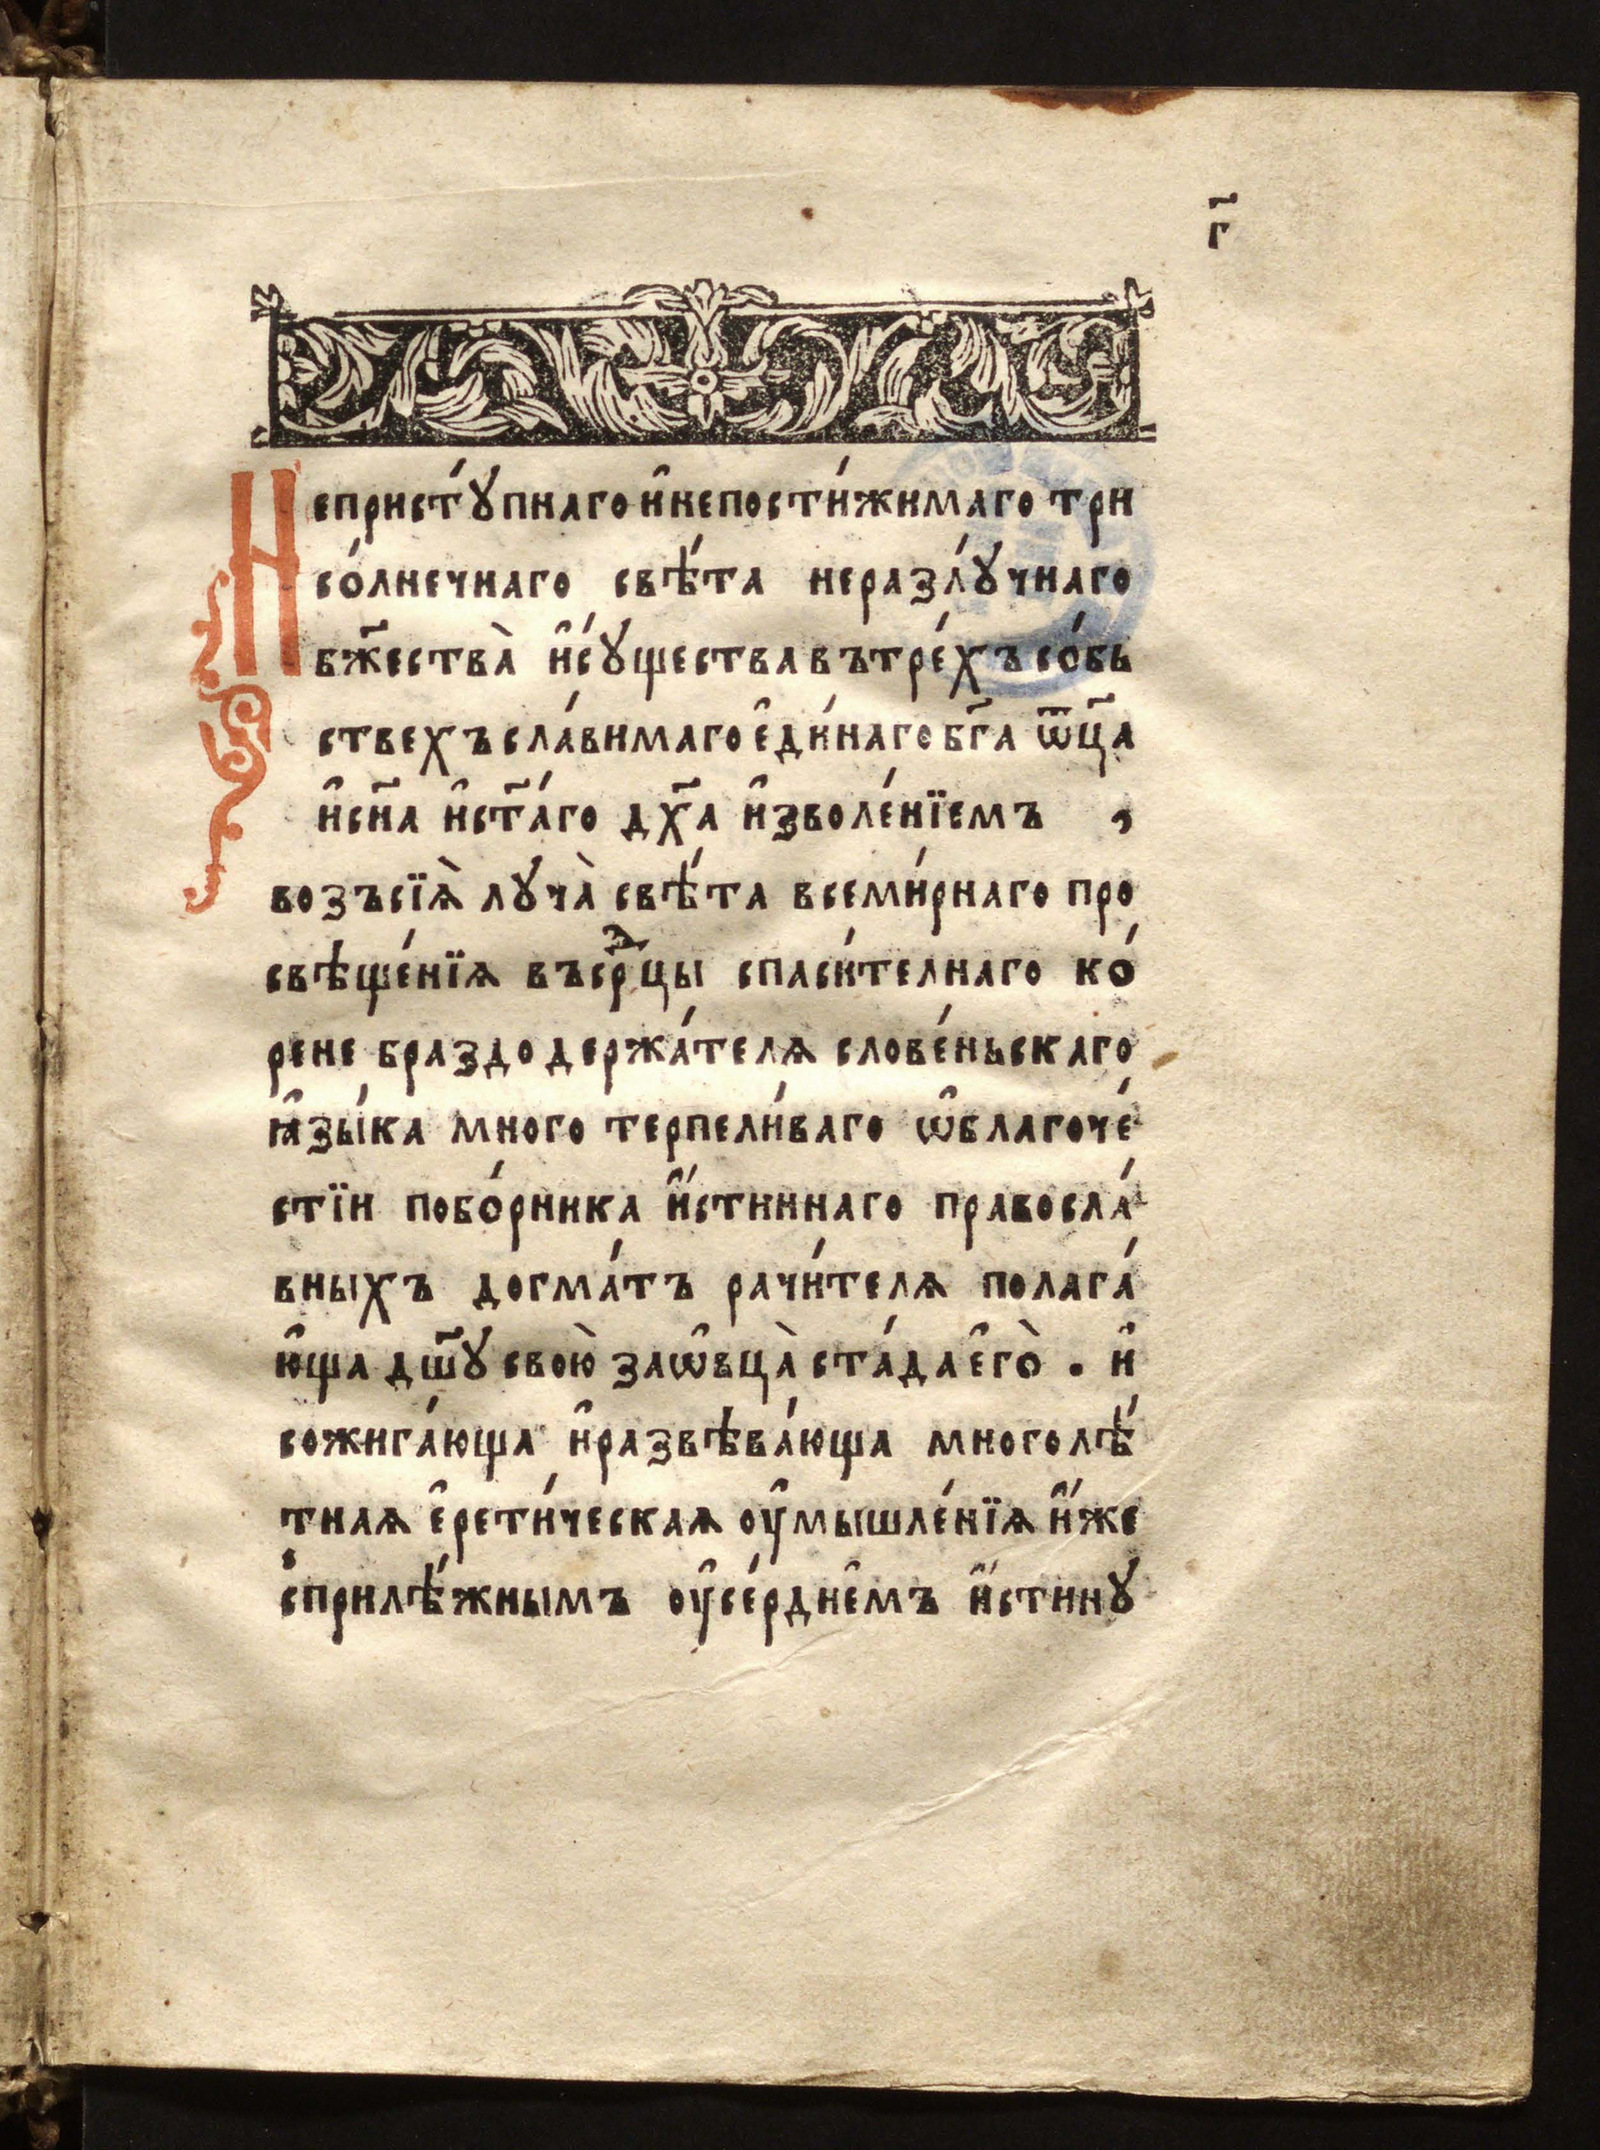 г҃
Непристꙋ́пнаго и҆непости́жимаго три
со́лнечнаго свѣ́та неразлꙋ́чнаго
бж҃ества̀ и҆сꙋ́щества въ тре́хъ со́бь
ствехъ сла́вимаго є҆ди́наго бг҃а ѿц҃а
и҆сн҃а и҆ст҃а́го дх҃а и҆зволе́нїемъ ,
возъсїѧ̀ лꙋча̀ свѣ́та всеми́рнаго про
свѣще́нїѧ въсрⷣцы спаси́телнаго ко́
рене браздодержа́телѧ слове́ньскаго
ꙗ҆зы́ка много терпели́ваго ѡ҆благоче́
стїи побо́рника и҆́стиннаго правосла́
вныхъ догма́тъ рачи́телѧ полага́
ю҆ща дш҃ꙋ свою̀ заѡ҆вца̀ ста́да є҆го̀ . и҆
сожига́юща и҆развѣва́юща многолѣ́
тнаѧ є҆рети́ческаѧ оу҆мышле́нїѧ и҆́же
сприлѣ́жнымъ оу҆се́рдиє҆мъ и҆́стинꙋ